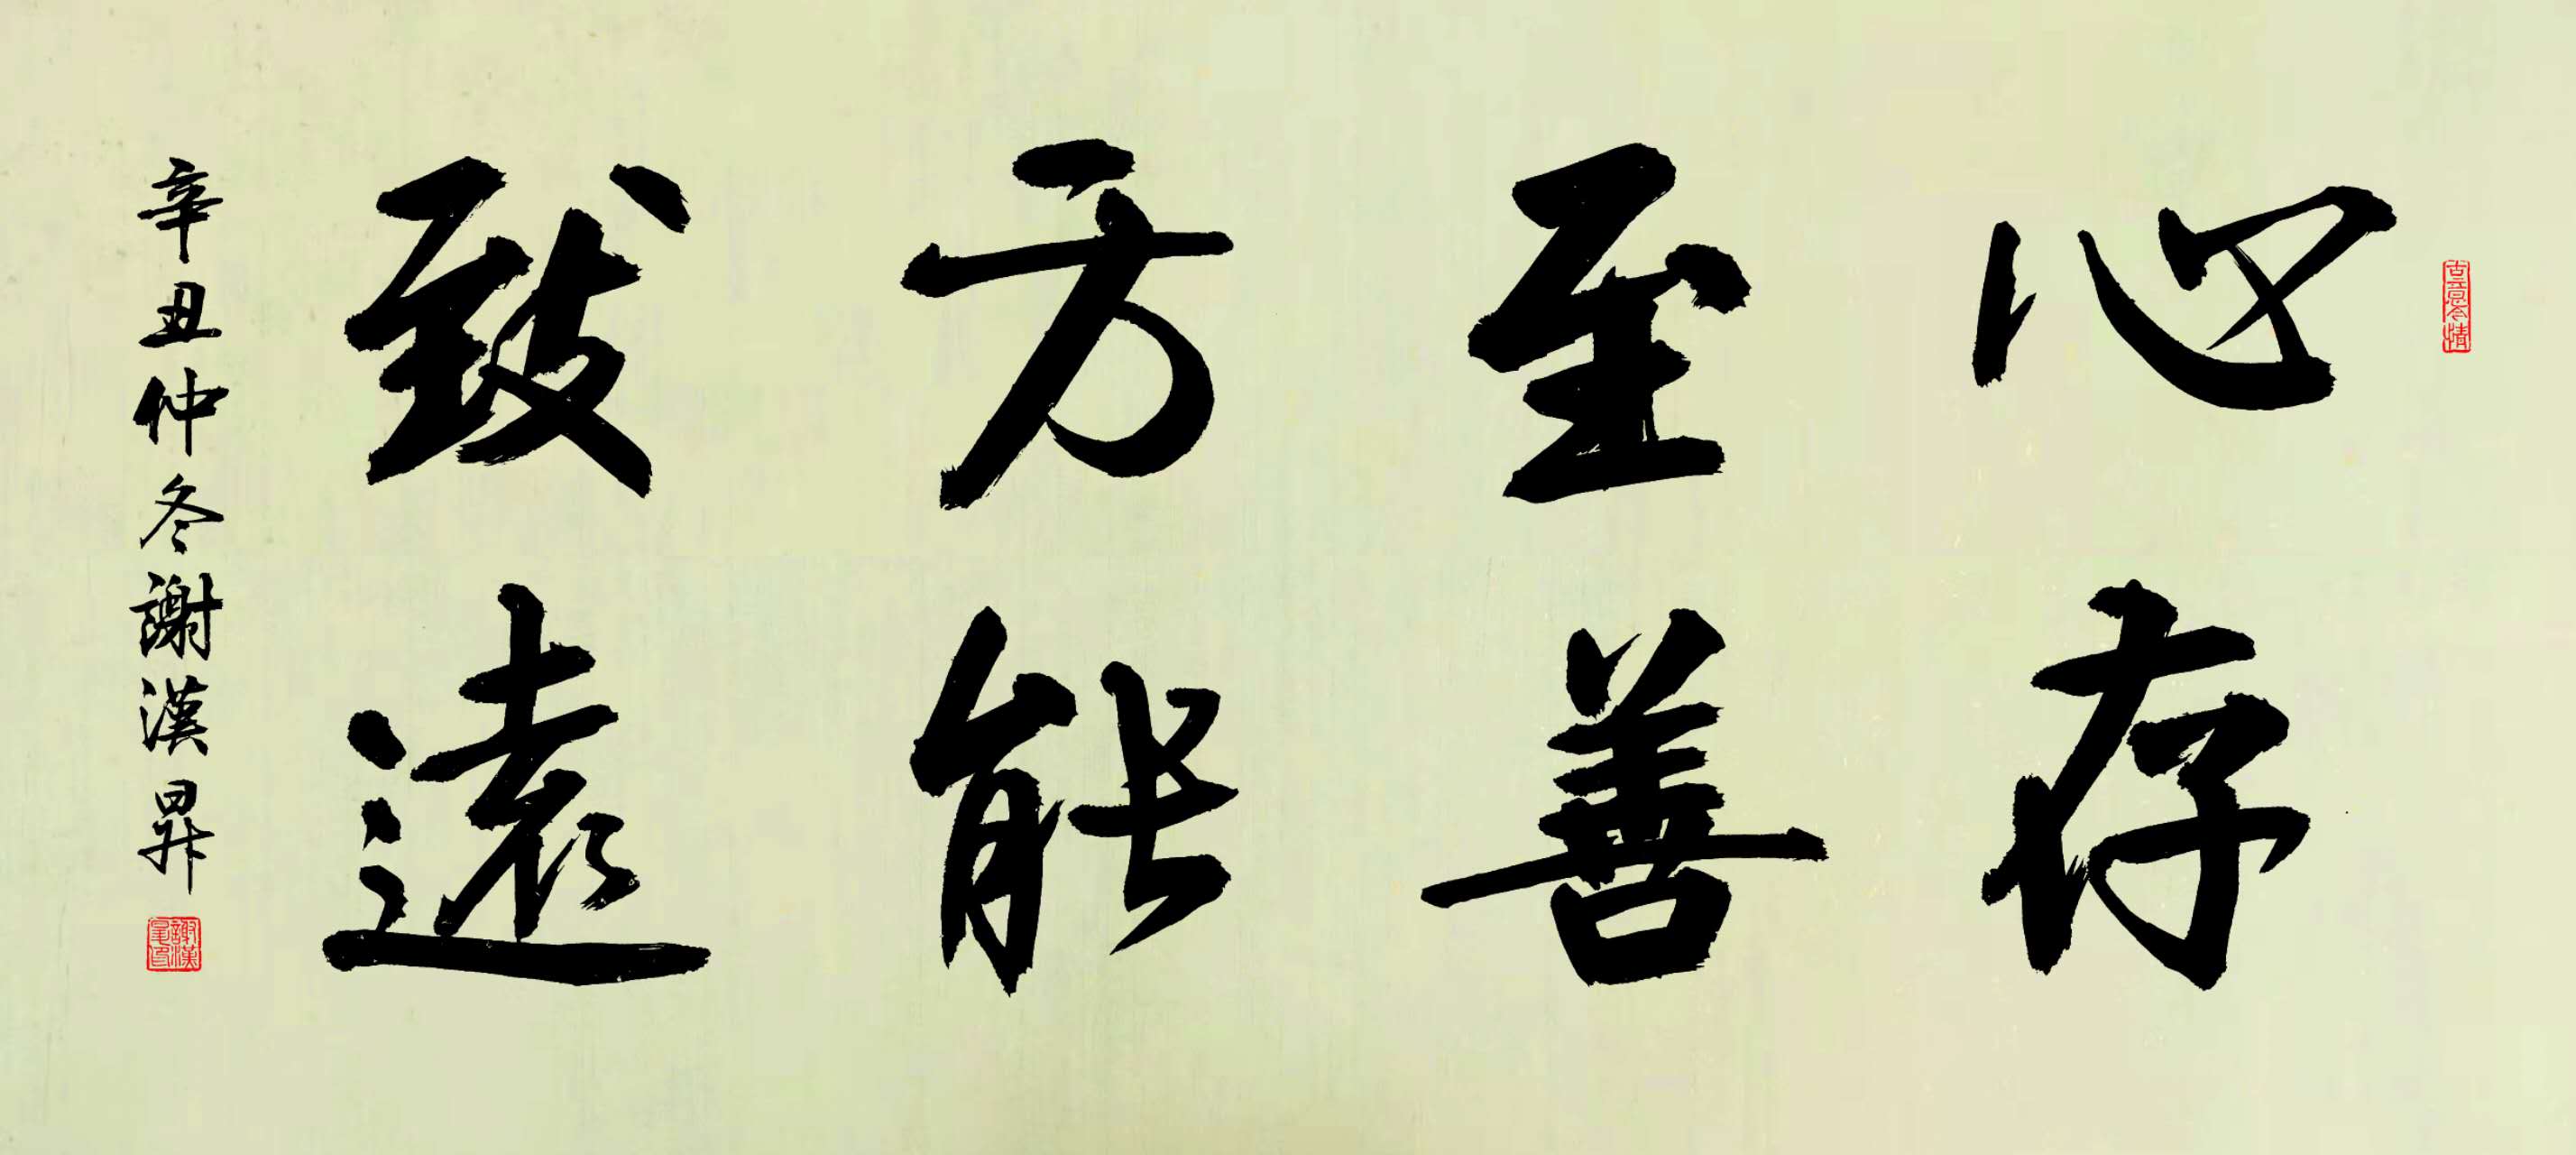 心存
至善
方能
致遠
辛丑仲冬謝漢昇